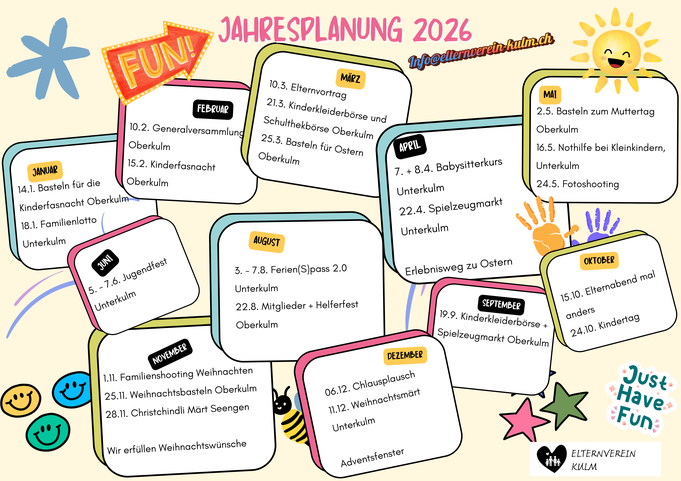 JAHRESPLANUNG 2026
Info@elternverein-kulm.ch
FUN!
JANUAR
14.1. Basteln für die
Kinderfasnacht Oberkulm
18.1. Familienlotto
Unterkulm
FEBRUAR
10.2. Generalversammlung
Oberkulm
15.2. Kinderfasnacht
Oberkulm
MÄRZ
10.3. Elternvortrag
21.3. Kinderkleiderbörse und
Schulthekbörse Oberkulm
25.3. Basteln für Ostern
Oberkulm
APRIL
7. + 8.4. Babysitterkurs
Unterkulm
22.4. Spielzeugmarkt
Unterkulm
Erlebnisweg zu Ostern
MAI
2.5. Basteln zum Muttertag
Oberkulm
16.5. Nothilfe bei Kleinkindern,
Unterkulm
24.5. Fotoshooting
JUNI
5. - 7.6. Jugendfest
Unterkulm
AUGUST
3. - 7.8. Ferien(S)pass 2.0
Unterkulm
22.8. Mitglieder + Helferfest
Oberkulm
SEPTEMBER
19.9. Kinderkleiderbörse +
Spielzeugmarkt Oberkulm
OKTOBER
15.10. Elternabend mal
anders
24.10. Kindertag
NOVEMBER
1.11. Familienshooting Weihnachten
25.11. Weihnachtsbasteln Oberkulm
28.11. Christchindli Märt Seengen
Wir erfüllen Weihnachtswünsche
DEZEMBER
06.12. Chlausplausch
11.12. Weihnachtsmärt
Unterkulm
Adventsfenster
Just
Have
Fun
ELTERNVEREIN
KULM